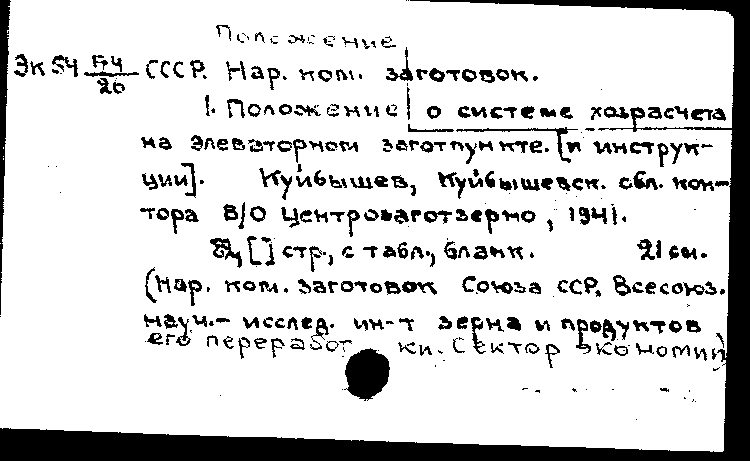 Положение
Эк 54 54/26 СССР. Нар. ком. заготовок.
1. Положение о системе хозрасчета
на элеваторном заготпункте. [и инструк-
ции]. Куйбышев, Куйбышевск. обл. кон-
тора В/О Центрозаготзерно, 1941.
[] стр., с табл., бланк. 21 см.
(Нар. ком. заготовок Союза ССР, Всесоюз.
науч.- исслед. ин-т зерна и продуктов
его переработ ки. Сектор экономии)